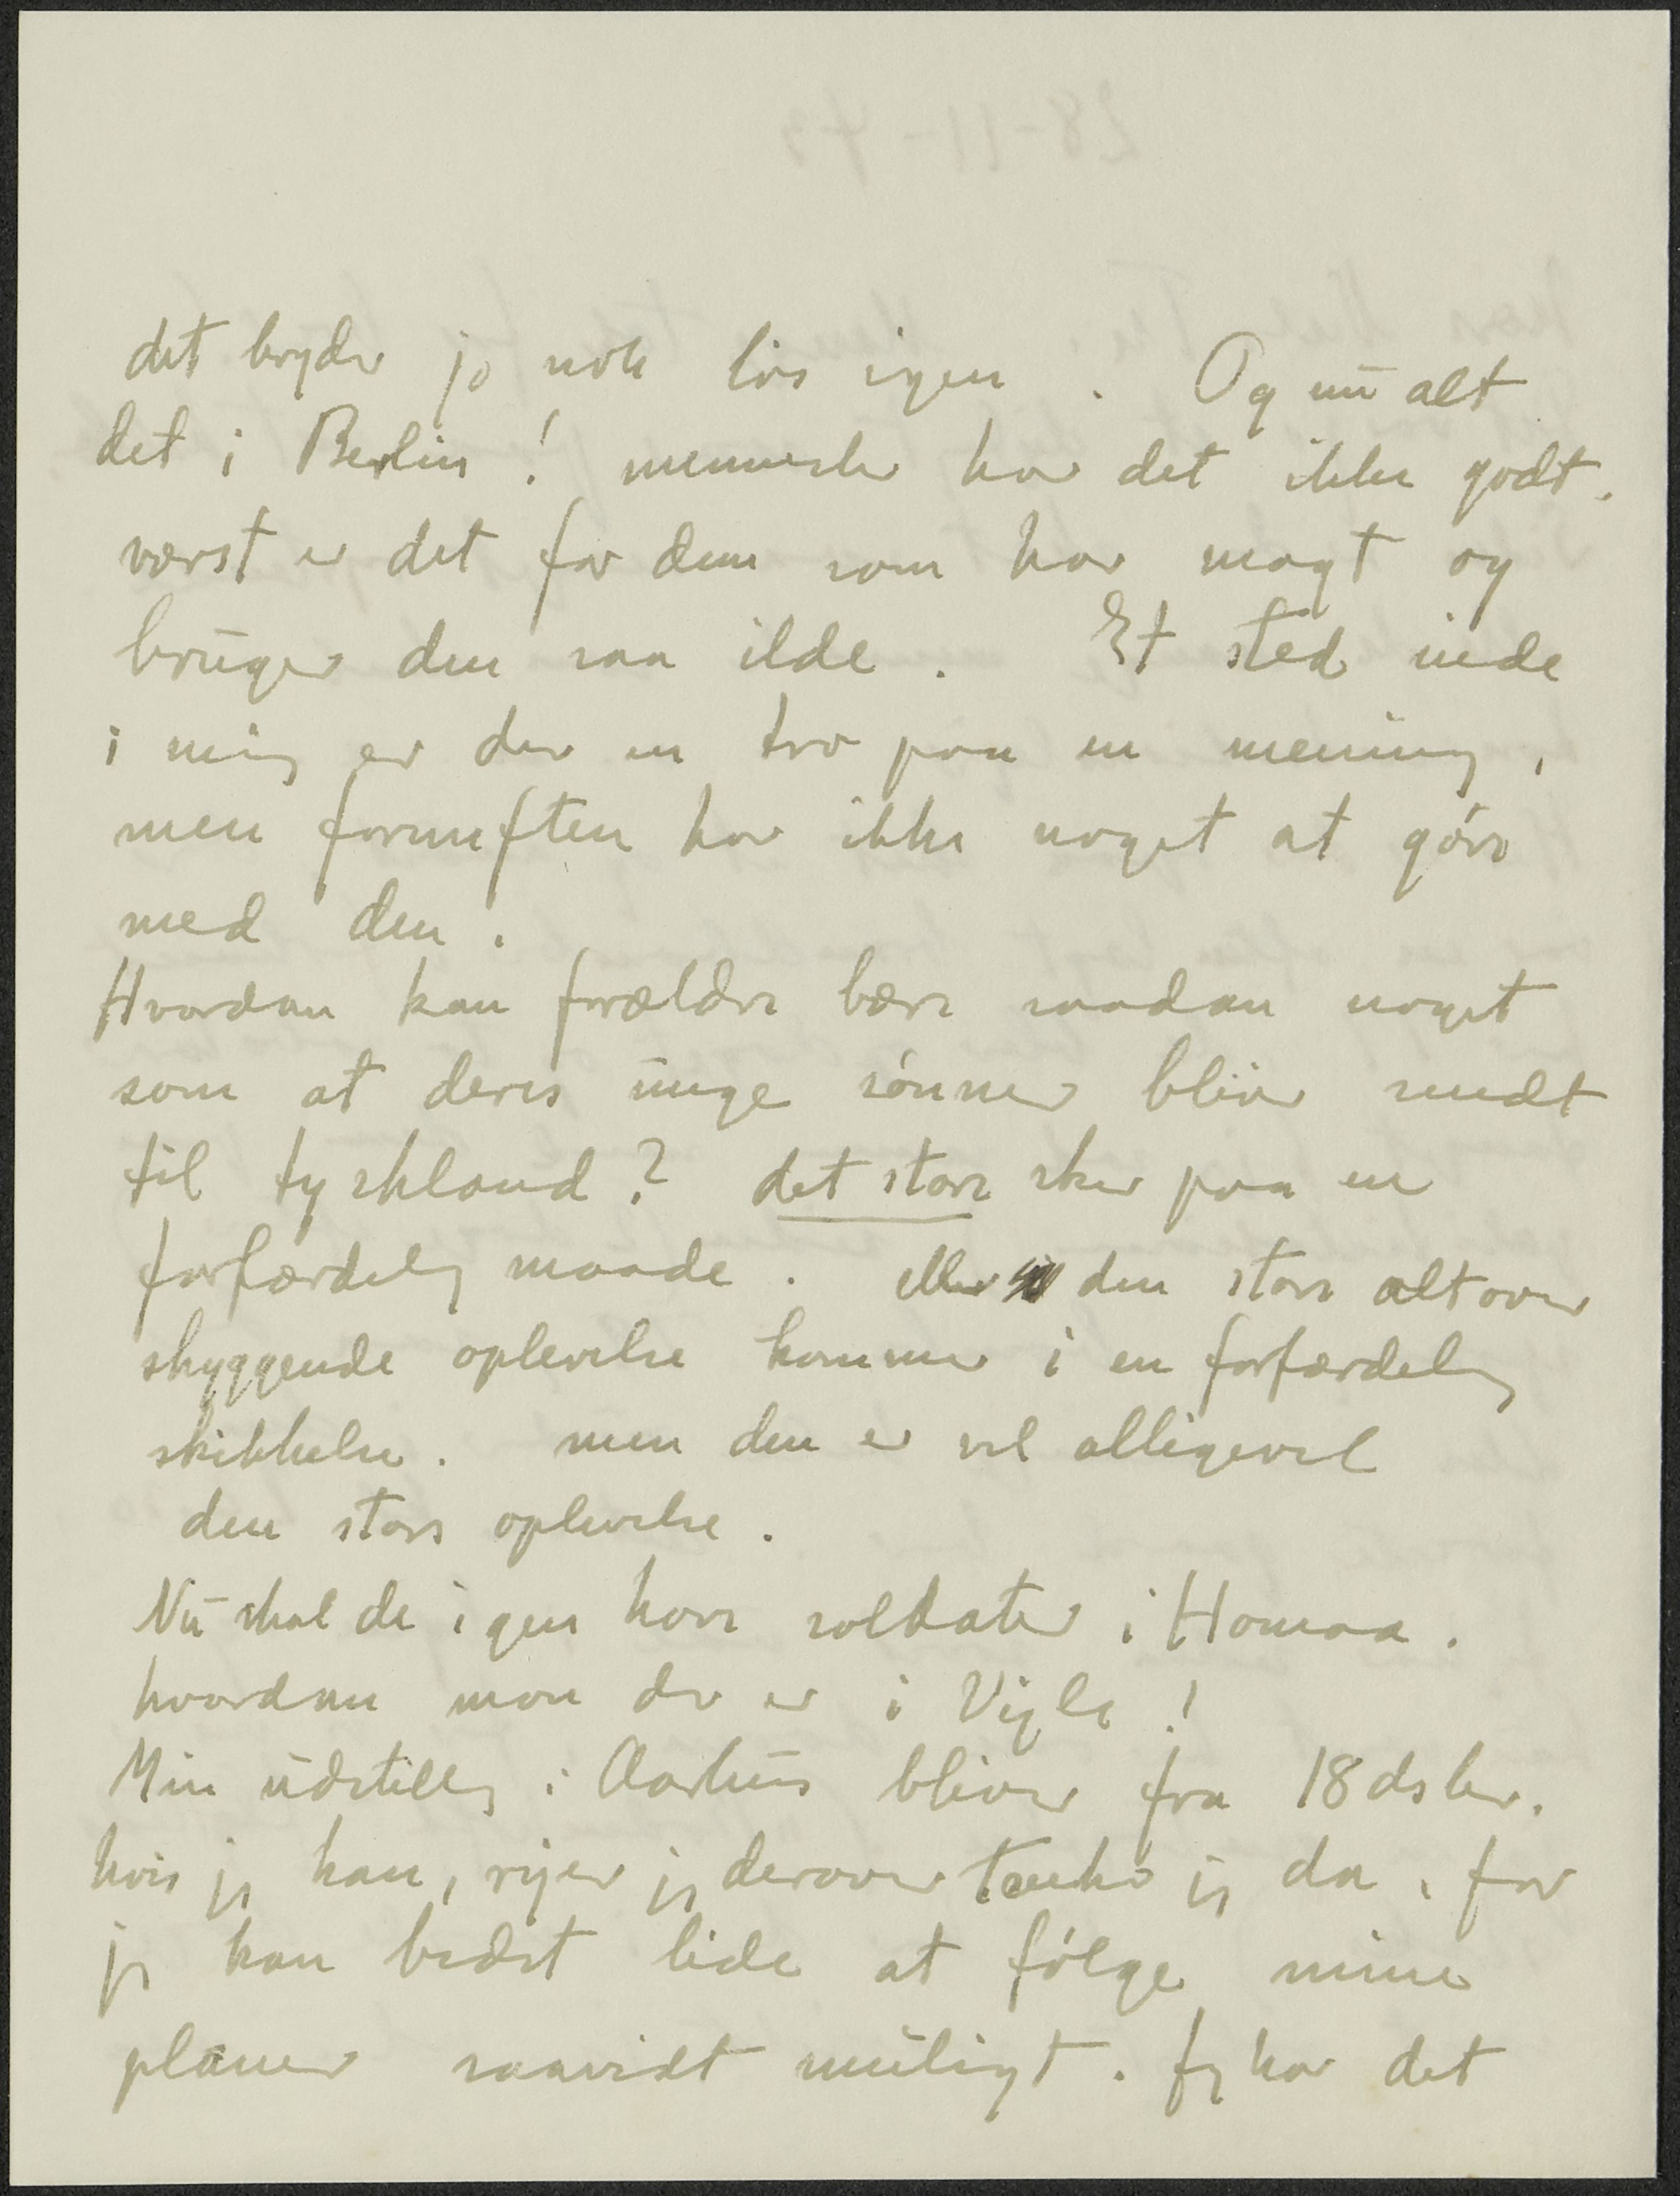 det bryder jo nok løs igen. Og nu alt
det i Berlin! mennesker har det ikke godt.
værst er det for dem som har magt og
bruger den saa ilde. Et sted inde
i mig er der en tro paa en mening,
men fornuften har ikke noget at gøre
med den.
Hvordan kan forældre bære saadan noget
som at deres unge sønner bliver sendt
til tyskland? det store sker paa en
forfærdelig maade. eller den store altover
skyggende oplevelse kommer i en forfærdelig
skikkelse. men den er vel alligevel
den store oplevelse.
Nu skal de igen have soldater i Homaa.
hvordan mon der er i Vejle!
Min udstilling i Aarhus bliver fra 18 dsbr.
hvis jeg kan, rejser jeg derover tænker jeg da, for
jeg kan bedst lide at følge mine
planer saavidt muligt. Jeg har det